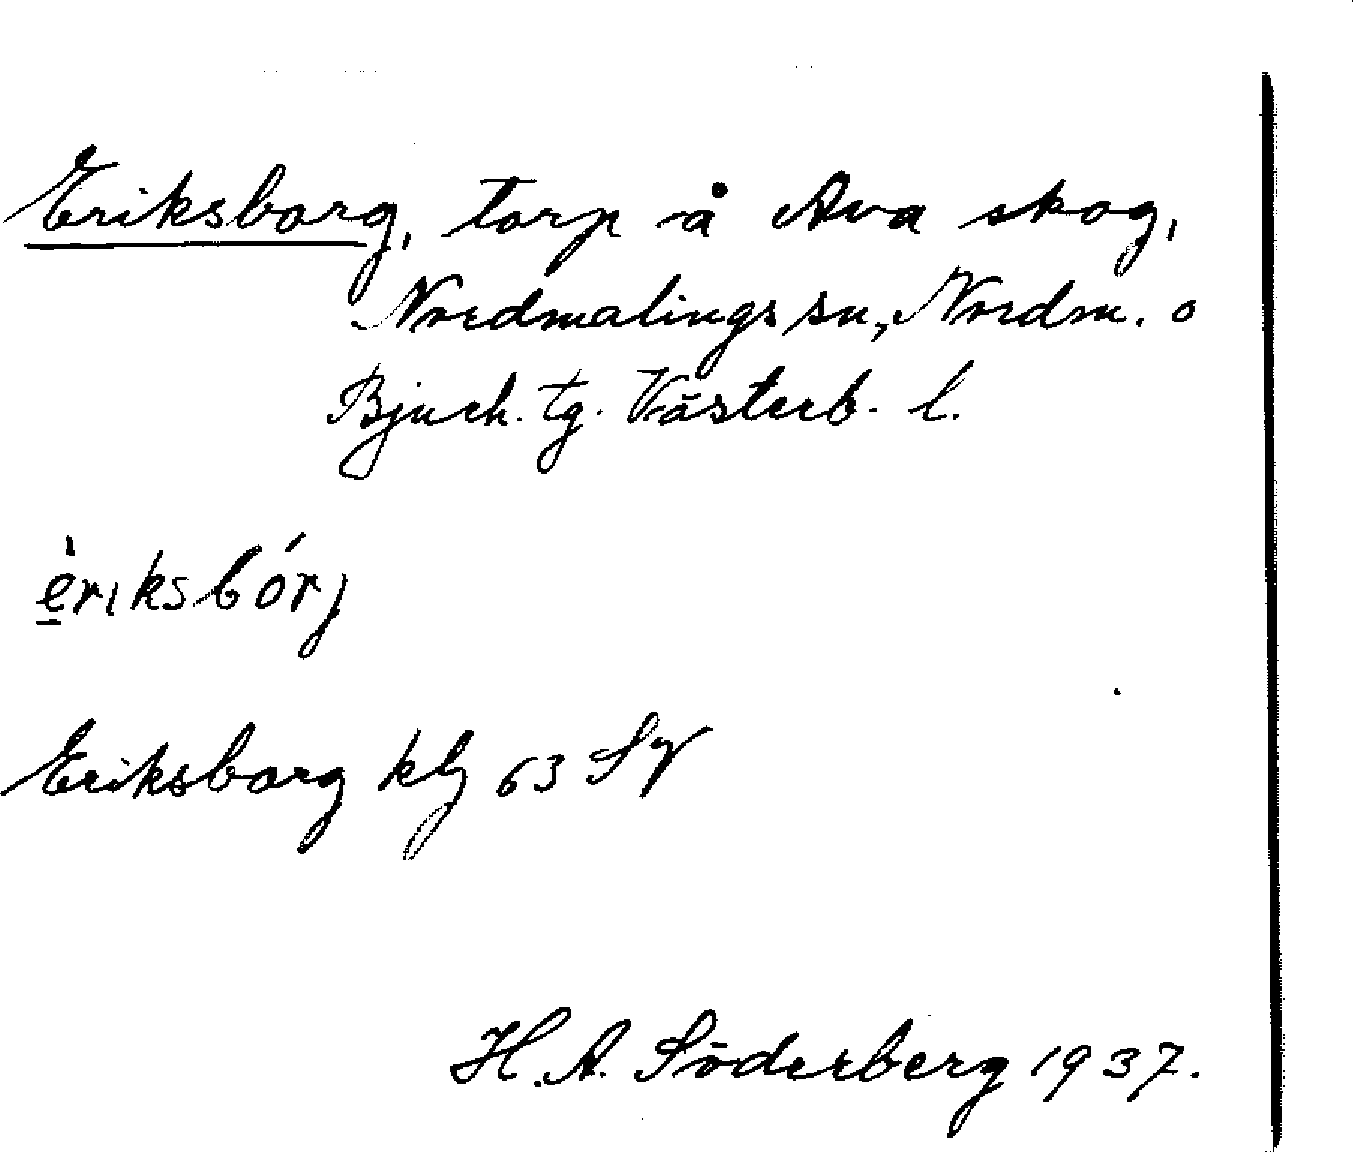 Eriksborg, torp å Ava skog,
Nordmalings sn, Nordm. o
Bjurh. tg. Västerb. l.
èriksbórj
Eriksborg kbj 63 SV
H. A. Söderberg 1937.